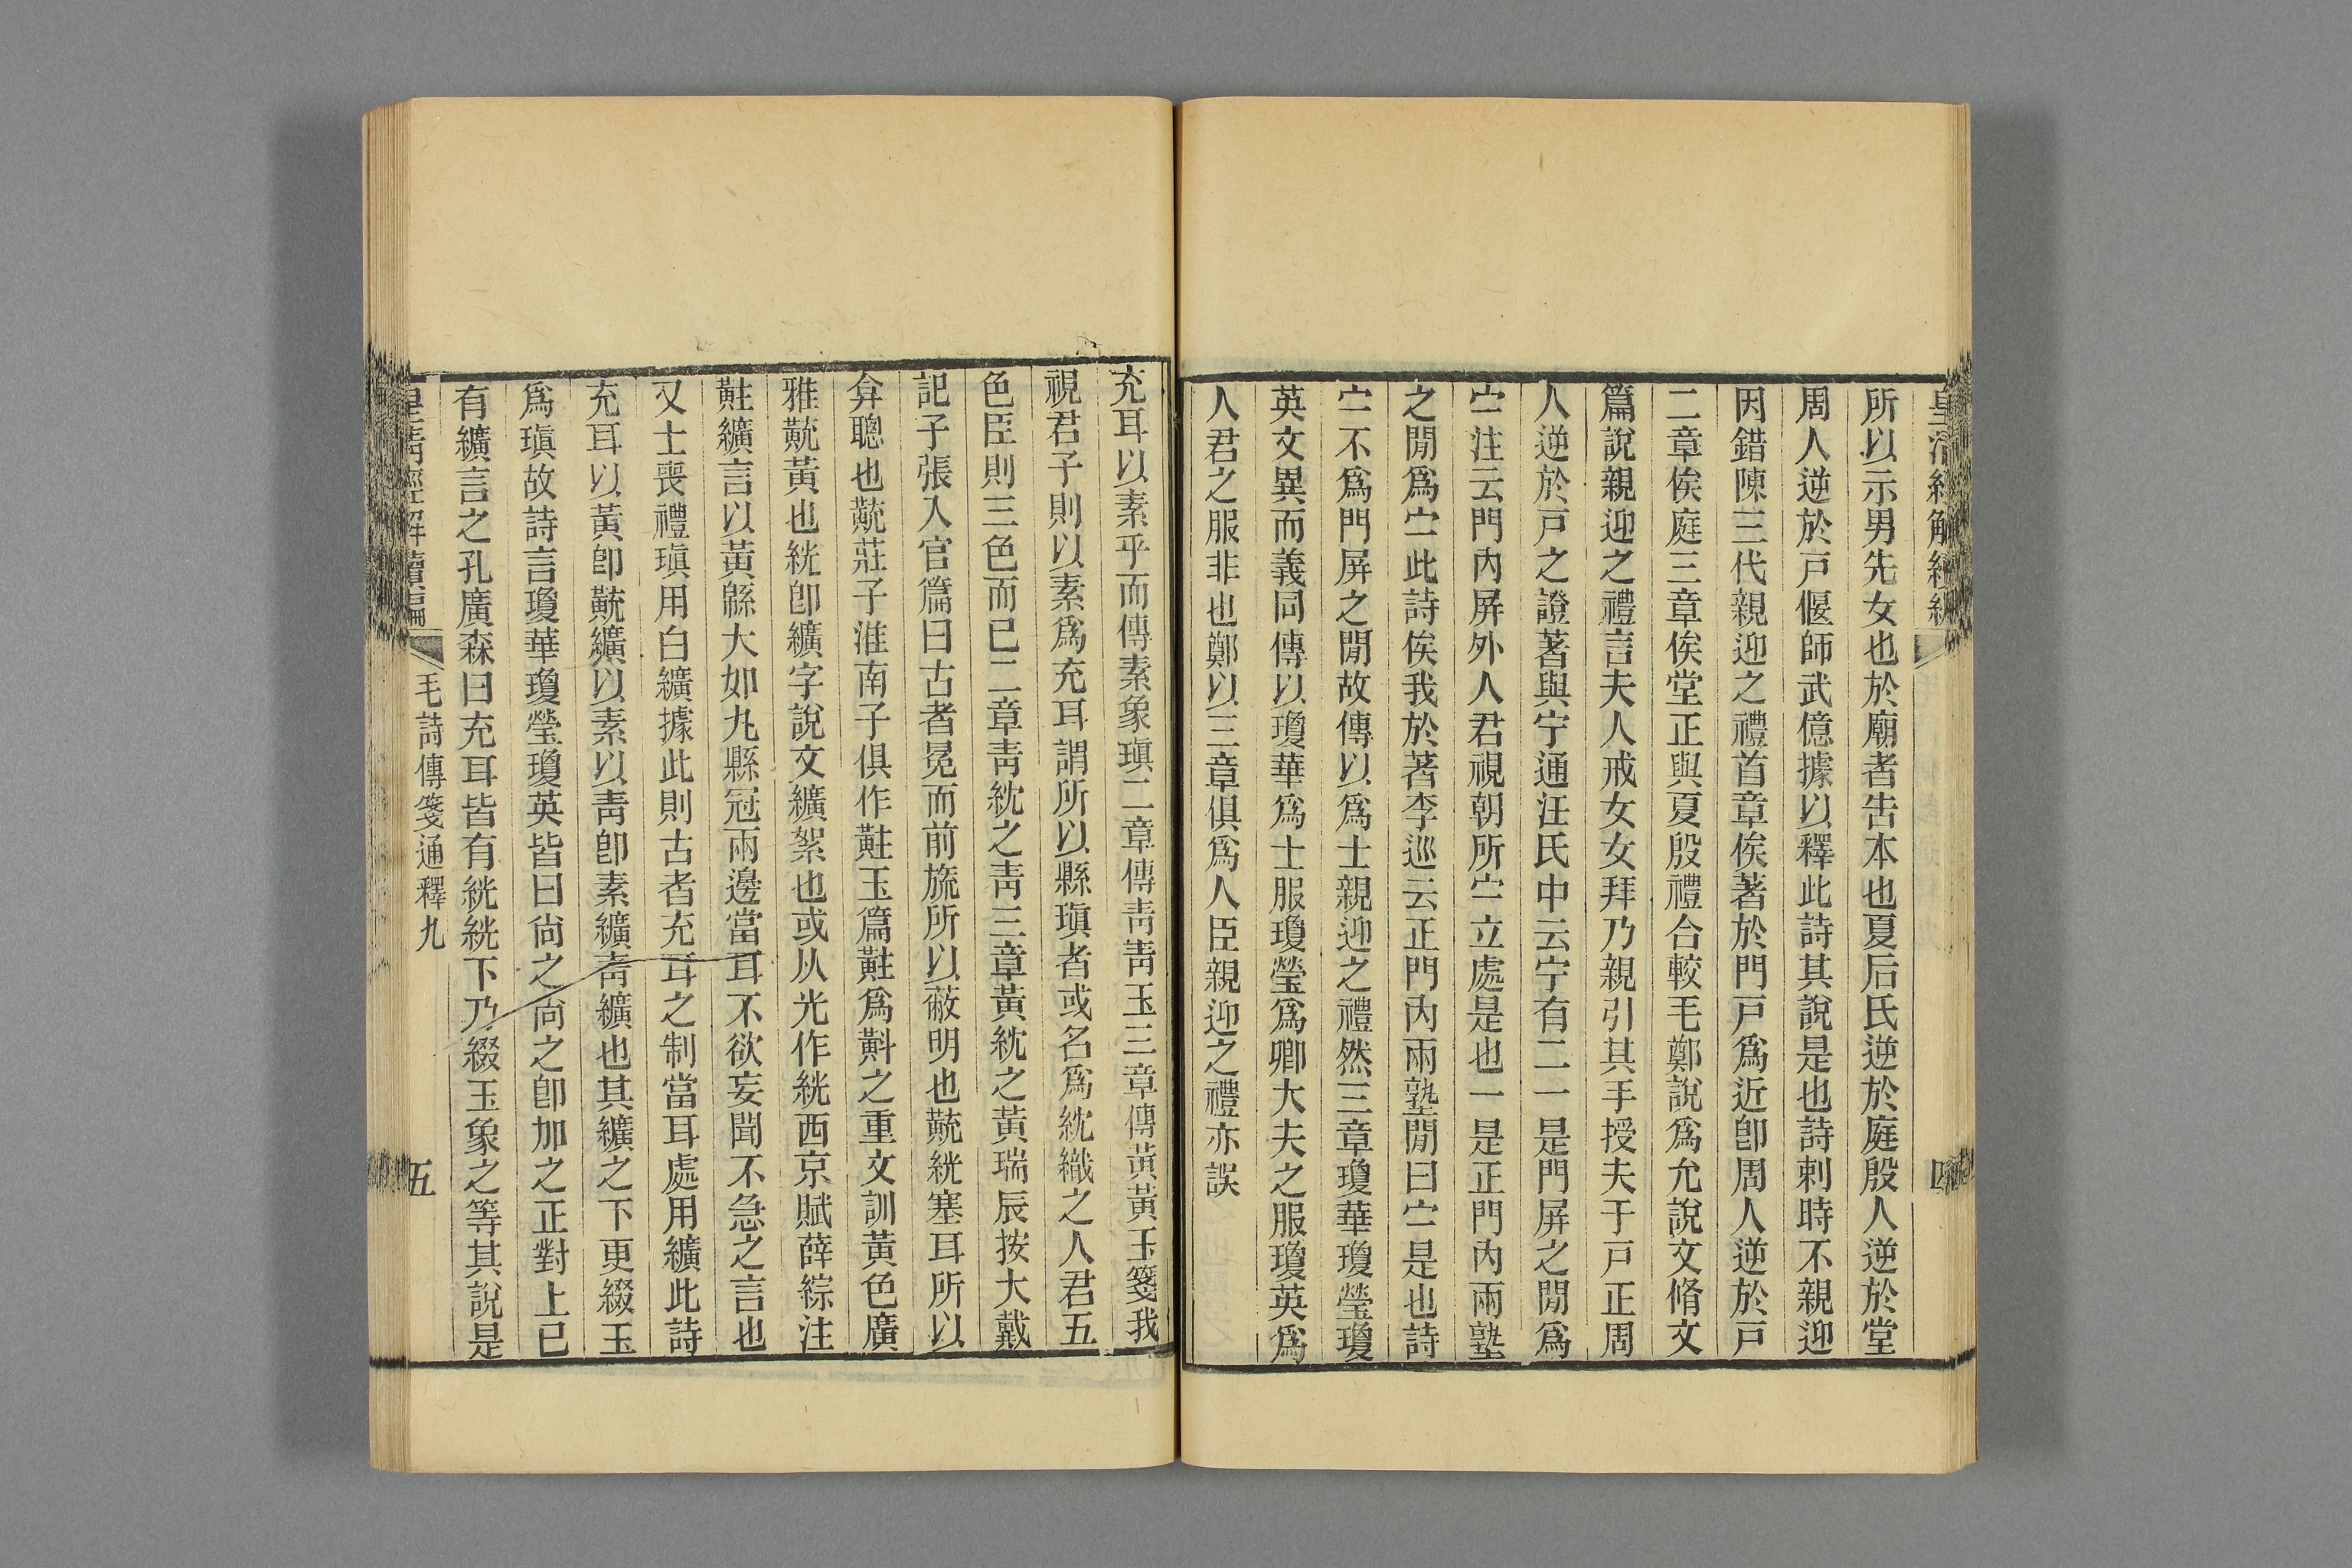 所以示男先女也於廟者告本也夏后氏逆於庭殷人逆於堂
周人逆於戸偃師武億據以釋此詩其說是也詩刺時不親迎
因錯陳三代親迎之禮首章俟著於門戸爲近卽周人逆於戸
二章俟庭三章俟堂正與夏殷禮合較毛鄭說爲允說文脩文
篇說親迎之禮言夫人戒女女拜乃親引其手授夫于戸正周
人逆於戸之證著與宁通汪氏中云宁有二一是門屏之閒爲
宁注云門內屏外人君視朝所宁立處是也一是正門內兩塾
之閒爲宁此詩俟我於著李巡云正門內兩塾閒曰宁是也詩
宁不爲門屏之閒故傳以爲士親迎之禮然三章瓊華瓊瑩瓊
英文異而義同傳以瓊華爲士服瓊瑩爲卿大夫之服瓊英爲
人君之服非也鄭以三章俱爲人臣親迎之禮亦誤
充耳以素乎而傳素象瑱二章傳青青玉三章傳黃黃玉箋我
視君子則以素爲充耳謂所以縣瑱者或名爲紞織之人君五
色臣則三色而已二章青紞之青三章黃紞之黃瑞辰按大戴
記子張入官篇曰古者冕而前旒所以蔽明也黈絖塞耳所以
弇聰也黈莊子淮南子俱作黈玉篇黈爲斢之重文訓黃色廣
雅黈黃也絖卽纊字說文纊絮也或从光作絖西京賦薛綜注
黈纊言以黃緜大如丸縣冠兩邊當耳不欲妄聞不急之言也
又士喪禮瑱用白纊據此則古者充耳之制當耳處用纊此詩
充耳以黃卽黈纊以素以青卽素纊青纊也其纊之下更綴玉
爲瑱故詩言瓊華瓊瑩瓊英皆曰尙之尙之卽加之正對上已
有纊言之孔廣森曰充耳皆有絖絖下乃綴玉象之等其說是
皇清經解續編
毛詩傳箋通釋九
五